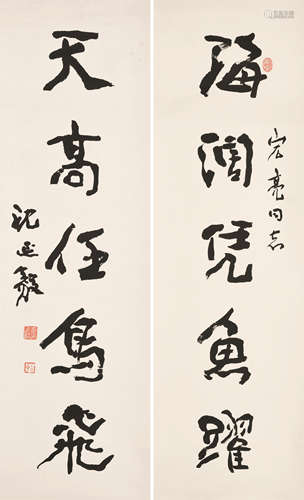 海阔凭鱼跃
宏亮同志
天高任鸟飞
沈延毅